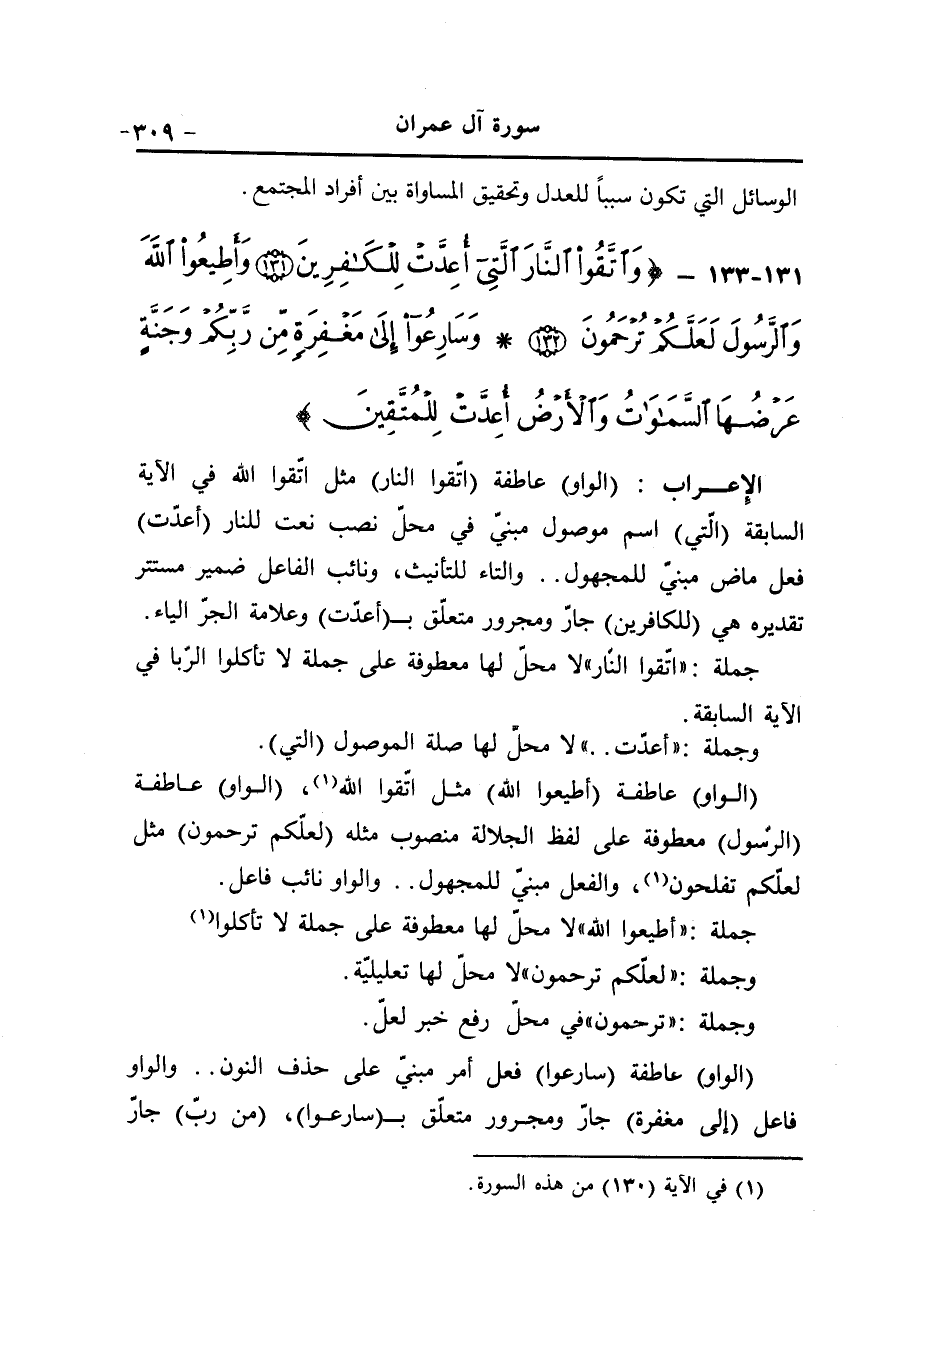 سورة آل عمران - ٣٠٩-
الوسائل التي تكون سبباً للعدل وتحقيق المساواة بين أفراد المجتمع .
١٣١-١٣٣ - ﴿ وَٱتَّقُوا۟ ٱلنَّارَ ٱلَّتِىٓ أُعِدَّتْ لِلْكَـٰفِرِينَ ١٣١ وَأَطِيعُوا۟ ٱللَّهَ
وَٱلرَّسُولَ لَعَلَّكُمْ تُرْحَمُونَ ١٣٢ * وَسَارِعُوٓا۟ إِلَىٰ مَغْفِرَةٍ مِّن رَّبِّكُمْ وَجَنَّةٍ
عَرْضُهَا ٱلسَّمَـٰوَٰتُ وَٱلْأَرْضُ أُعِدَّتْ لِلْمُتَّقِينَ ﴾
الإعــراب : (الواو) عاطفة (اتّقوا النار) مثل اتّقوا الله في الآية
السابقة (الّتي) اسم موصول مبنيّ في محلّ نصب نعت للنار (أعدّت)
فعل ماض مبنيّ للمجهول.. والتاء للتأنيث، ونائب الفاعل ضمير مستتر
تقديره هي (للكافرين) جارّ ومجرور متعلّق بـ(أعدّت) وعلامة الجرّ الياء.
جملة :«اتّقوا النّار»لا محلّ لها معطوفة على جملة لا تأكلوا الرّبا في
الآية السابقة.
وجملة :«أعدّت..»لا محلّ لها صلة الموصول (التي).
(الـواو) عاطفـة (أطيعوا الله) مثـل اتّقوا الله(١)، (الـواو) عـاطفـة
(الرّسول) معطوفة على لفظ الجلالة منصوب مثله (لعلّكم ترحمون) مثل
لعلّكم تفلحون(١)، والفعل مبنيّ للمجهول.. والواو نائب فاعل.
جملة :«أطيعوا الله»لا محلّ لها معطوفة على جملة لا تأكلوا(١)
وجملة :«لعلّكم ترحمون»لا محلّ لها تعليليّة.
وجملة :«ترحمون»في محلّ رفع خبر لعلّ.
(الواو) عاطفة (سارعوا) فعل أمر مبنيّ على حذف النون.. والواو
فاعل (إلى مغفرة) جارّ ومجـرور متعلّق بـ(سارعـوا)، (من ربّ) جارّ
(١) في الآية (١٣٠) من هذه السورة.